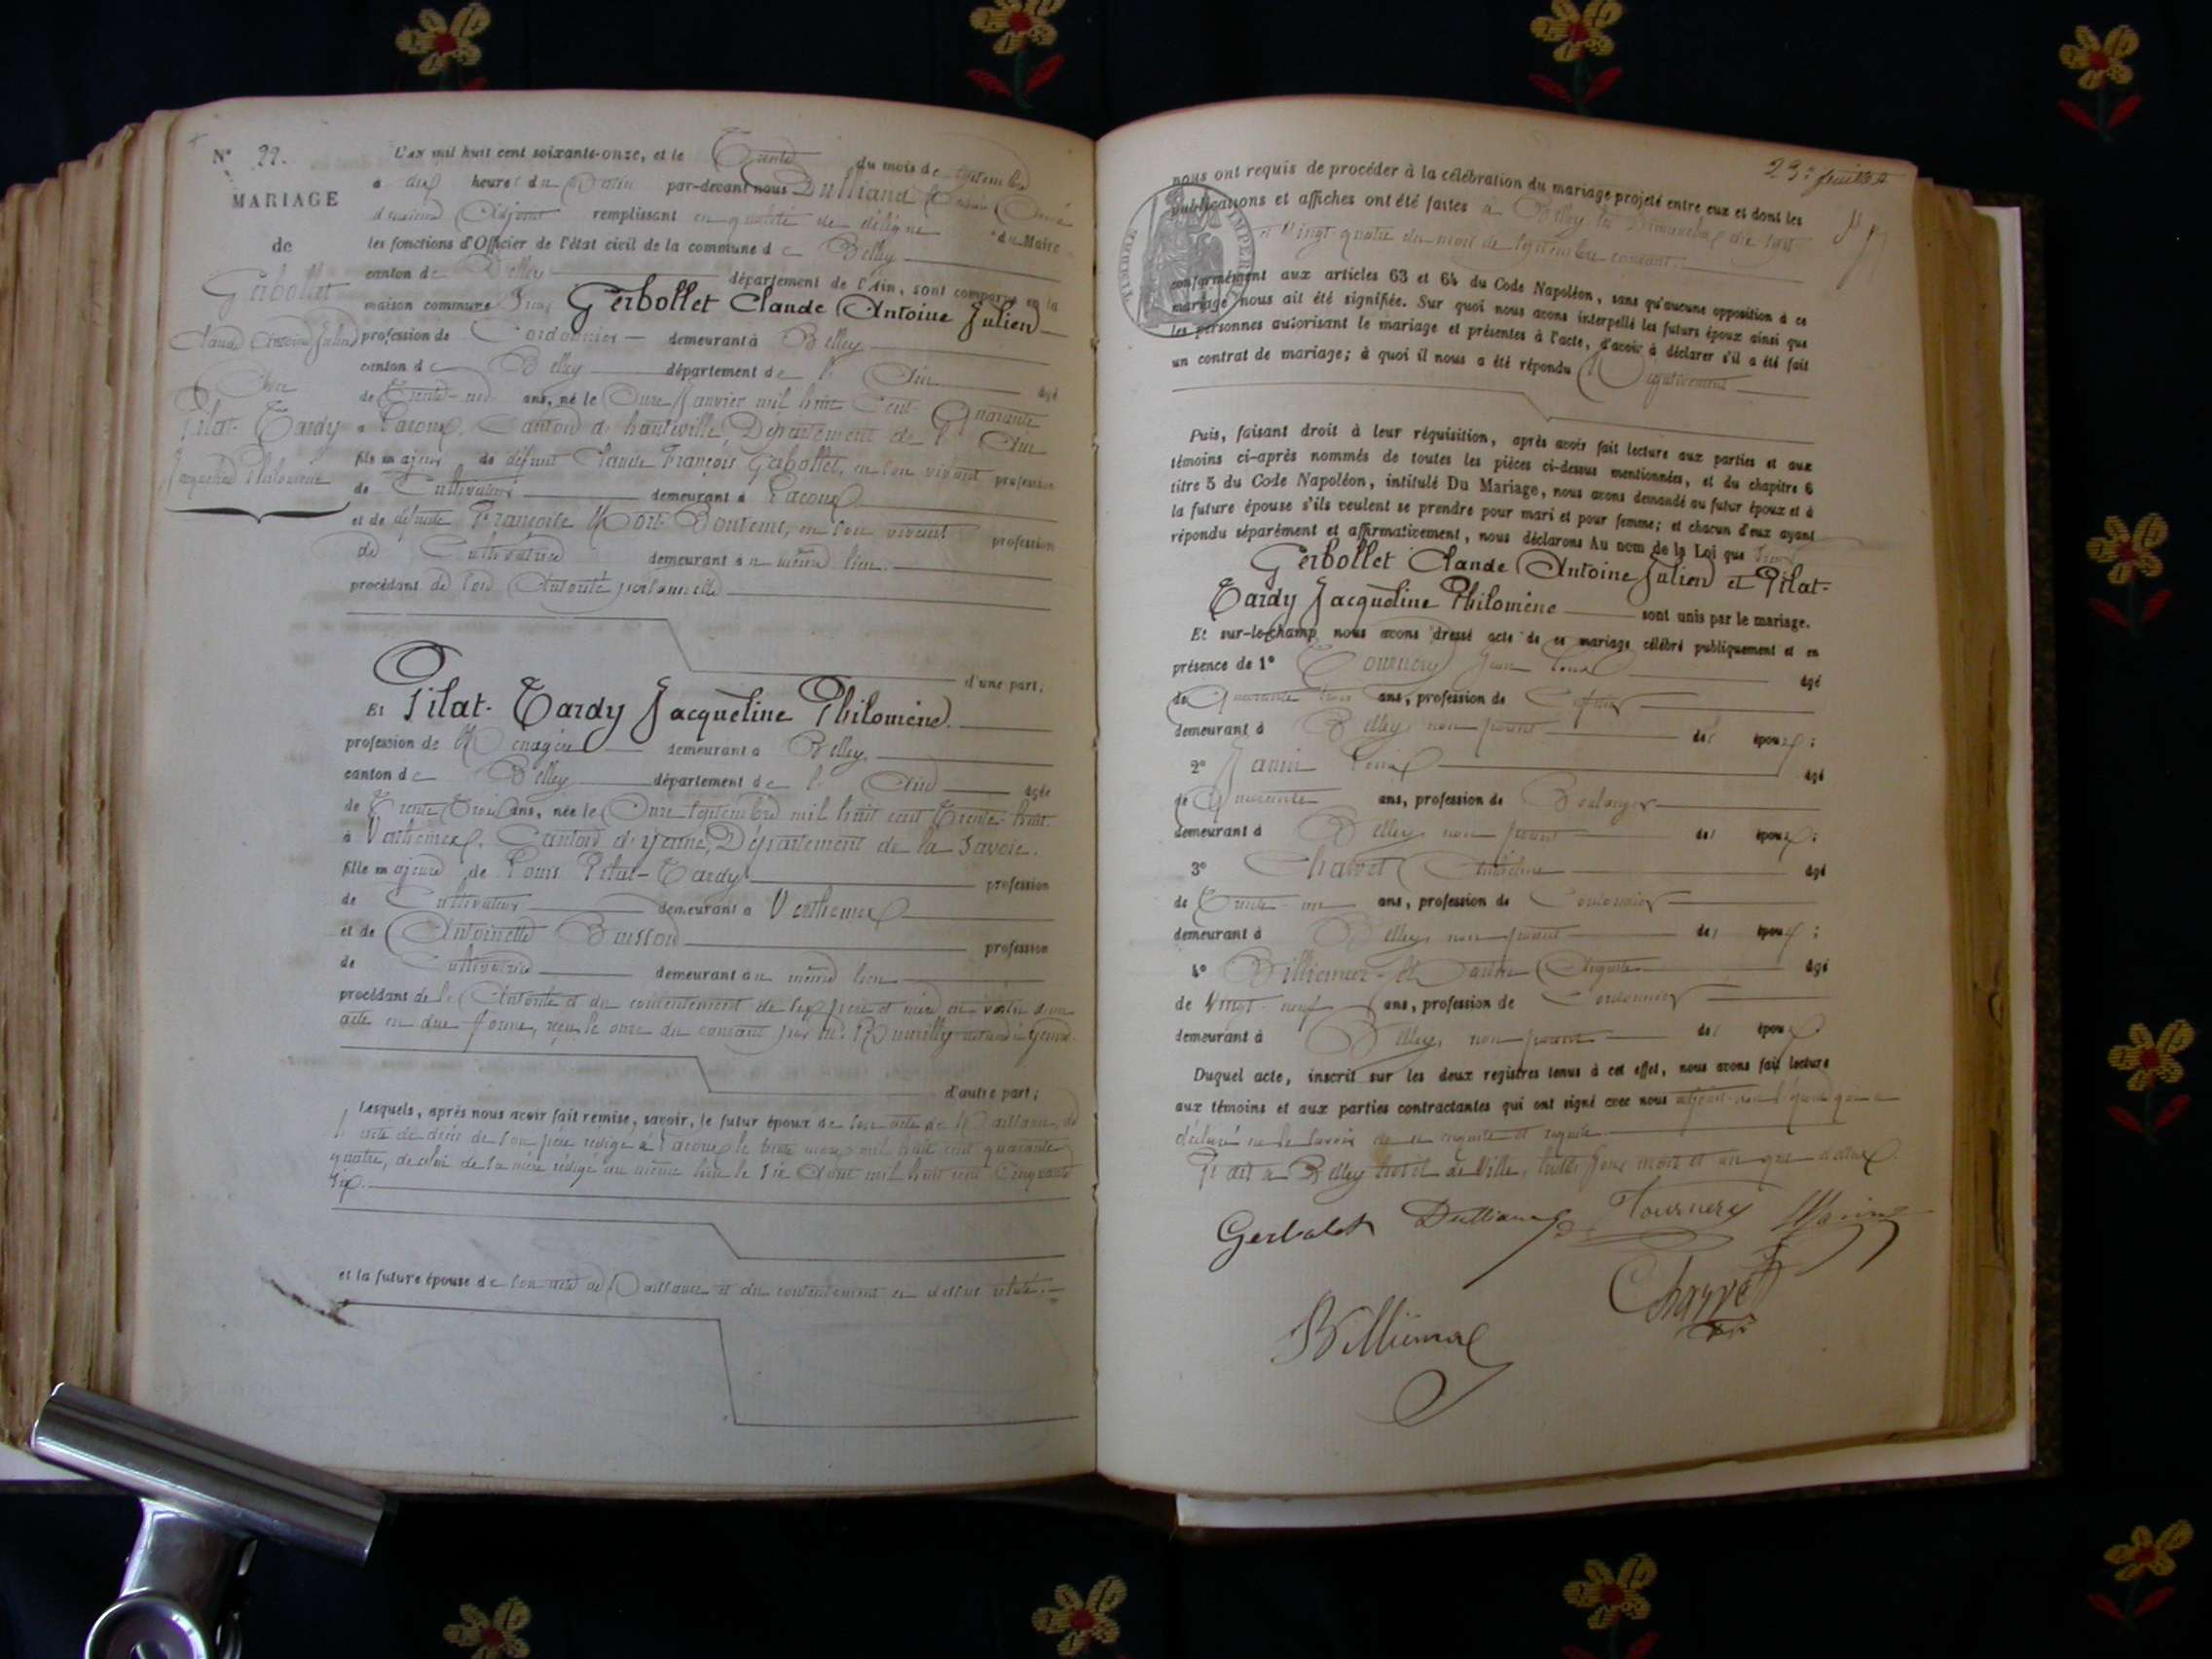 N° 22.
L'an mil huit cent soixante-onze, et le Trente du mois de septembre
à dix heures du Matin par-devant nous Dulliand
MARIAGE
deuxième Adjoint remplissant en qualité de délégué du Maire
de
les fonctions d'Officier de l'état civil de la commune de Belley
Gerbollet
canton de Belley département de l'Ain, sont comparus en la
maison commune Gerbollet Claude Antoine Julien
Claude Antoine Julien
profession de Cordonnier demeurant à Belley
canton de Belley département de l'Ain âgé
Avec
de Trente-un ans, né le Onze Janvier mil huit Cent Quarante
Pilat-Tardy
à Lacoux, Canton de hauteville, Département de l'Ain
fils majeur de défunt Claude François Gerbollet, en son vivant profession
Jacqueline Philomène
de Cultivateur demeurant à Lacoux
et de défunte Françoise en son vivant profession
de Cultivatrice demeurant au même lieu.
procédant de son Autorité personnelle
d'une part;
Et Pilat-Tardy Jacqueline Philomène.
profession de Ménagère demeurant à Belley,
canton de Belley département de l'Ain âgée
de Trente Trois ans, née le Onze septembre mil huit cent Trente-huit
à Verthemex, Canton d'yenne, Département de la Savoie.
fille majeure de Louis Pilat-Tardy profession
de Cultivateur demeurant à Verthemex
et de Antoinette Buisson profession
de Cultivatrice demeurant au même lieu
procédant de l'Autorité et du consentement de ses père et mère en vertu d'un
acte en due forme, reçu le onze du courant par Me. Rumilly notaire à yenne.
d'autre part;
Lesquels, après nous avoir fait remise, savoir, le futur époux de son acte de Naissance, de
acte de décès de son père rédigé à Lacoux le trente mars mil huit cent quarante
quatre, de celui de sa mère rédigé au même lieu le Six Août mil huit cent Cinquante
Six.
et la future épouse de son acte de Naissance et du consentement ci dessus relaté.
23e feuillet
nous ont requis de procéder à la célébration du mariage projeté entre eux et dont les
publications et affiches ont été faites à Belley les Dimanches dix sept
et Vingt quatre du mois de septembre courant.
TIMBRE IMPERIAL
conformément aux articles 63 et 64 du Code Napoléon, sans qu'aucune opposition à ce
mariage nous ait été signifiée. Sur quoi nous avons interpellé les futurs époux ainsi que
les personnes autorisant le mariage et présentes à l'acte, d'avoir à déclarer s'il a été fait
un contrat de mariage; à quoi il nous a été répondu Négativement
Puis, faisant droit à leur réquisition, après avoir fait lecture aux parties et aux
témoins ci-après nommés de toutes les pièces ci-dessus mentionnées, et du chapitre 6
titre 5 du Code Napoléon, intitulé Du Mariage, nous avons demandé au futur époux et à
la future épouse s'ils veulent se prendre pour mari et pour femme; et chacun d'eux ayant
répondu séparément et affirmativement, nous déclarons Au nom de la Loi que
Gerbollet Claude Antoine Julien et Pilat-
Tardy Jacqueline Philomène sont unis par le mariage.
Et sur-le-champ nous avons dressé acte de ce mariage célébré publiquement et en
présence de 1° Tournery Jean Louis âgé
de Quarante trois ans, profession de
demeurant à Belley, non parent des époux;
2° Janin Louis âgé
de Quarante ans, profession de Boulanger
demeurant à Belley, non parent des époux;
3° Charvet Anthelme âgé
de Trente-un ans, profession de Cordonnier
demeurant à Belley, non parent des époux;
4° Billiemaz Auguste âgé
de Vingt-neuf ans, profession de Cordonnier
demeurant à Belley, non parent des époux
Duquel acte, inscrit sur les deux registres tenus à cet effet, nous avons fait lecture
aux témoins et aux parties contractantes qui ont signé avec nous adjoint, non l'épouse qui a
déclaré ne le savoir de ce enquise et requise.
Fait à Belley hôtel de Ville, lesdits jour mois et an que dessus.
Gerbolet Dulliand Tournery
Charvet
Billiemaz